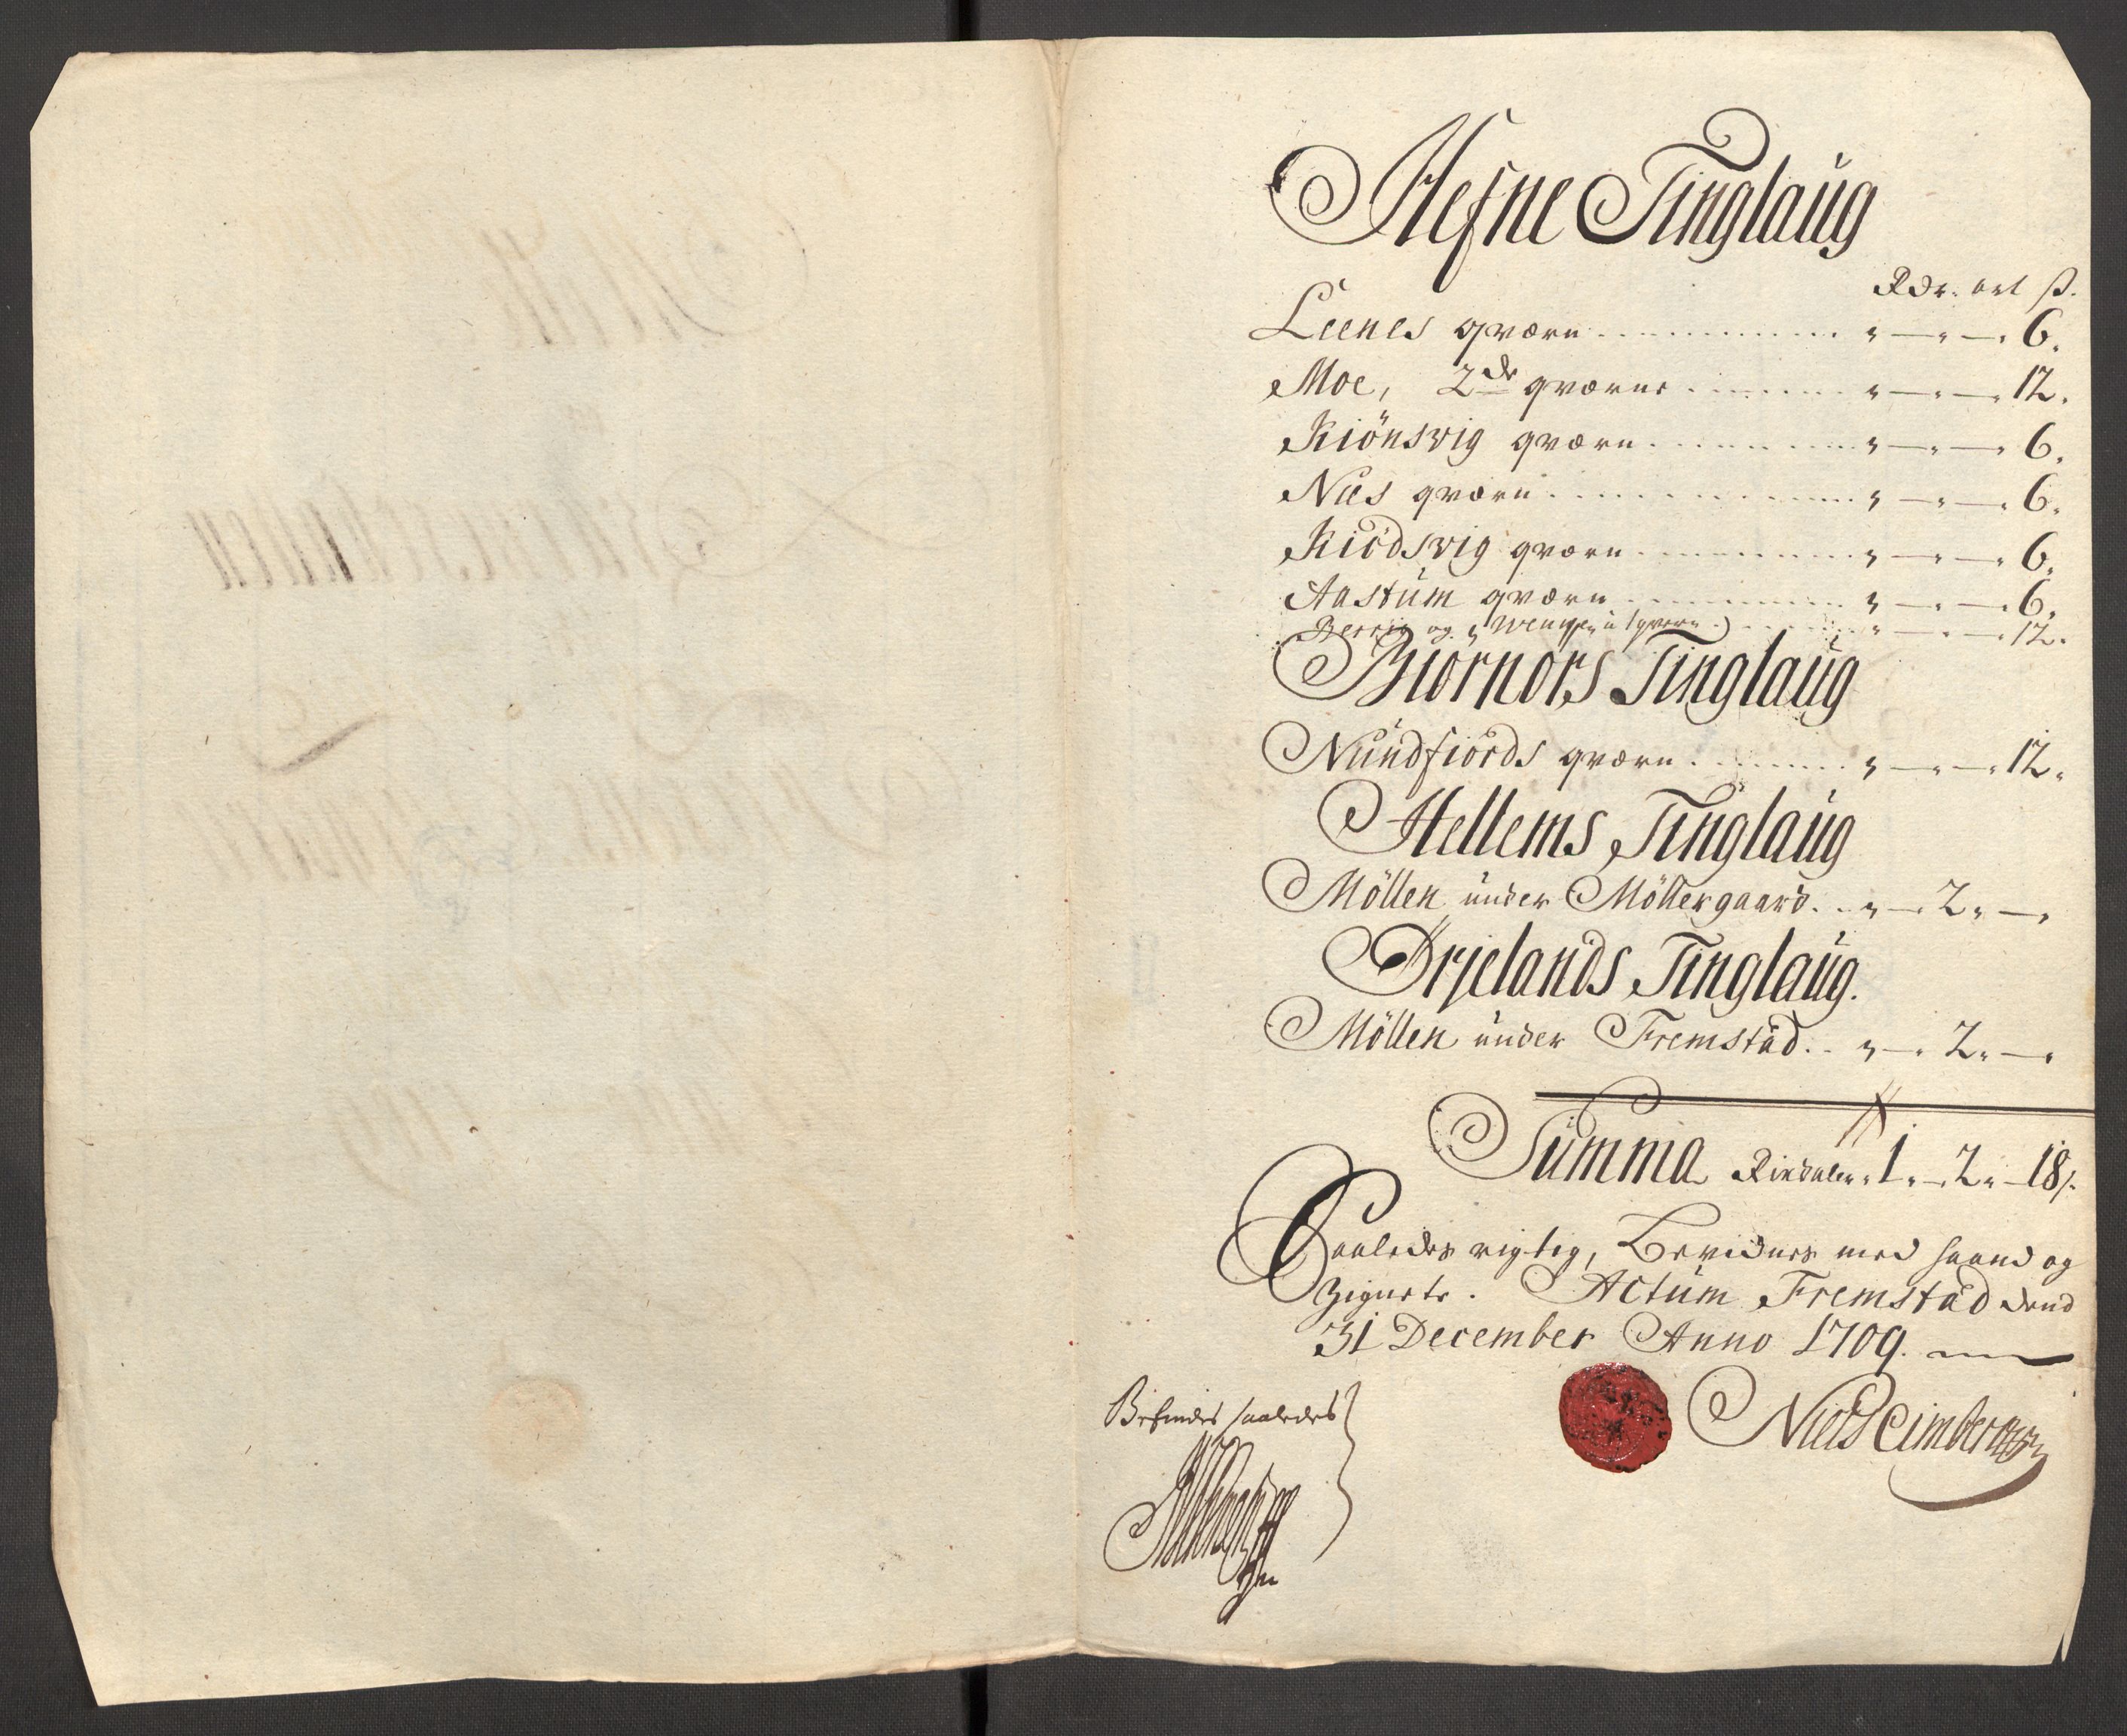 Hefne Tinglaug
Rdr. ort ß.
Leenes qværn . . . . . . " — " — " 6.
Moe, 2de qværne . . . . . . " — " — " 12.
Kiönsvig qværn . . . . . . " — " — " 6.
Næs qværn . . . . . . " — " — " 6.
Kiödsvig qværn . . . . . . " — " — " 6.
Aastum qværn . . . . . . " — " — " 6.
og qværn . . . . . . " — " — " 12.
Biörnörs Tinglaug
Nundfiords qværn . . . . . . " — " — " 12.
Hellems Tinglaug
Möllen under Möllergaard . . " — " 2 " — "
Ørjelands Tinglaug.
Möllen under Fremstad . . " — " 2 " — "
Summa Rixdaler " 1 " — 2 " — 18 ß.
Saaledes rigtig, Bevidnes med haand og
Zignete. Actum Fremstad dend
31 December Anno 1709.
Befindes saaledes
Niels Cimber